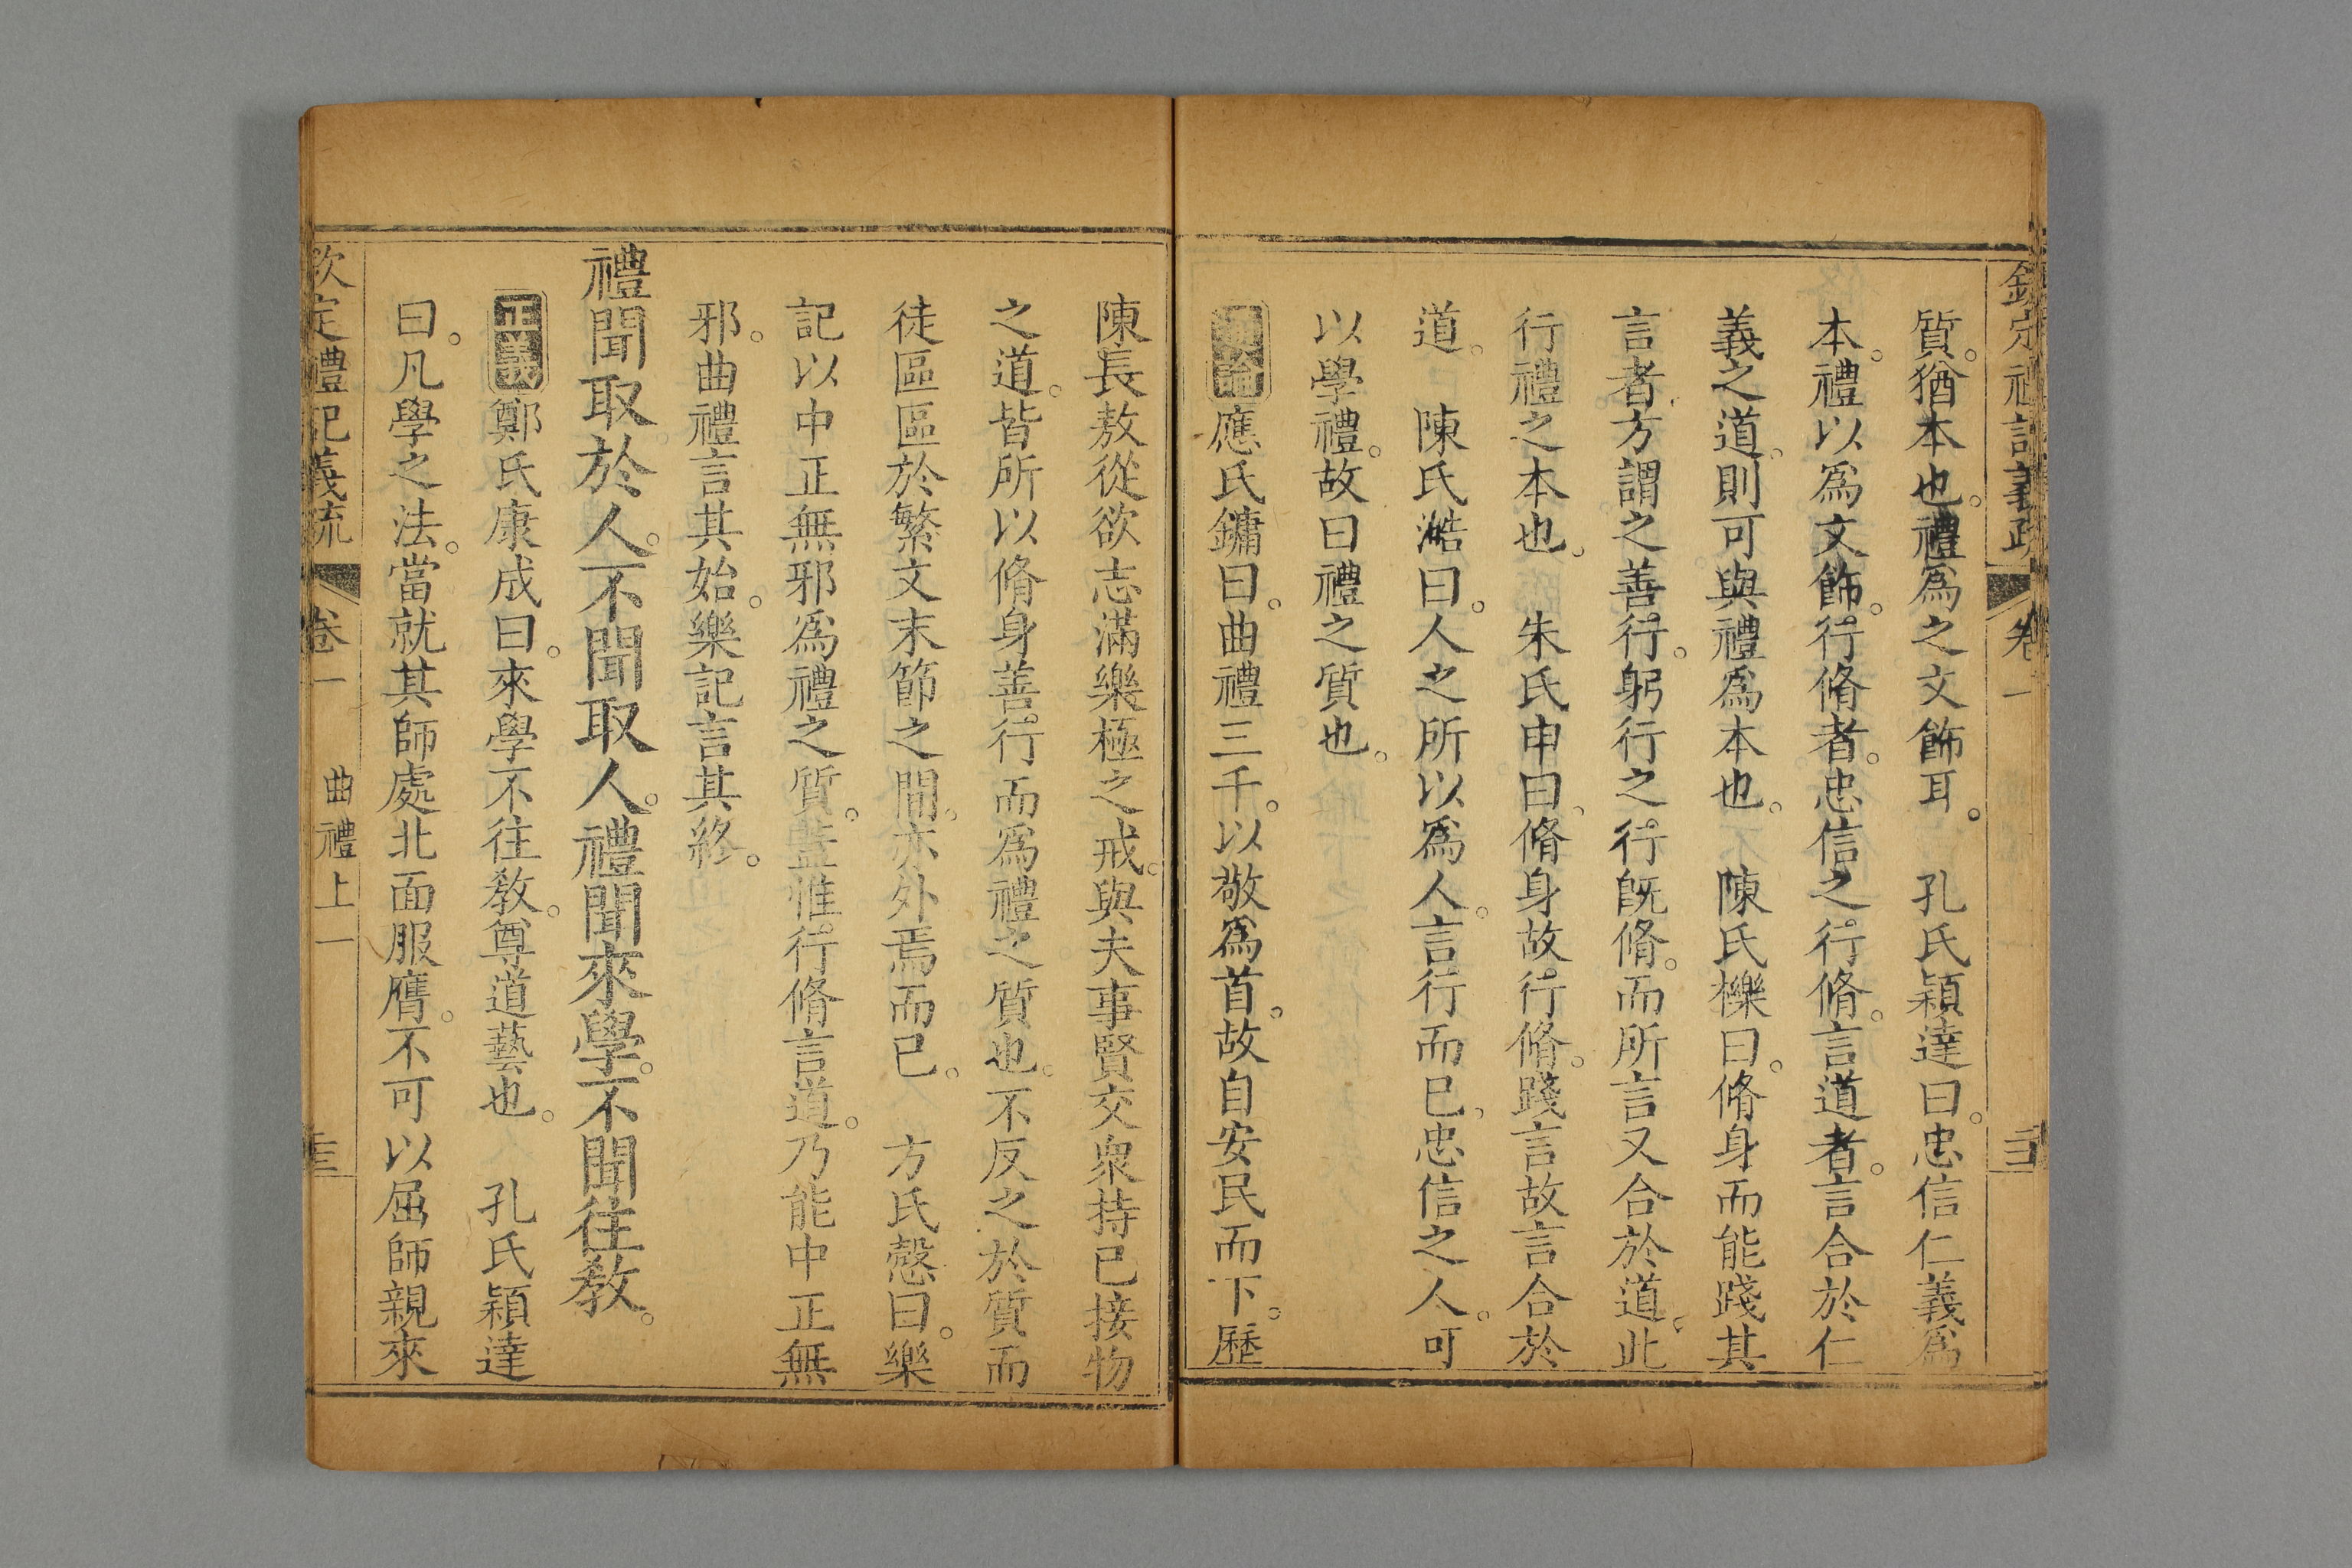 欽定禮記義疏 卷一
質。猶本也。禮爲之文飾耳。 孔氏穎達曰。忠信仁義爲
本。禮以爲文飾。行脩者。忠信之行脩。言道者。言合於仁
義之道。則可與禮爲本也。 陳氏櫟曰。脩身而能踐其
言者。方謂之善行。躬行之行旣脩。而所言又合於道。此
行禮之本也。 朱氏申曰。脩身故行脩。踐言故言合於
道。 陳氏澔曰。人之所以爲人。言行而已。忠信之人。可
以學禮。故曰禮之質也。
通論 應氏鏞曰。曲禮三千。以敬爲首。故自安民而下。歷
陳長敖從欲志滿樂極之戒。與夫事賢交衆持已接物
之道。皆所以脩身善行。而爲禮之質也。不反之於質而
徒區區於繁文末節之間。亦外焉而已。 方氏慤曰。樂
記以中正無邪爲禮之質。蓋惟行脩言道。乃能中正無
邪。曲禮言其始。樂記言其終。
禮聞取於人。不聞取人。禮聞來學。不聞往敎。
正義 鄭氏康成曰。來學不往敎。尊道藝也。 孔氏穎達
曰。凡學之法。當就其師處北面服膺。不可以屈師親來
欽定禮記義疏 卷一 曲禮上一